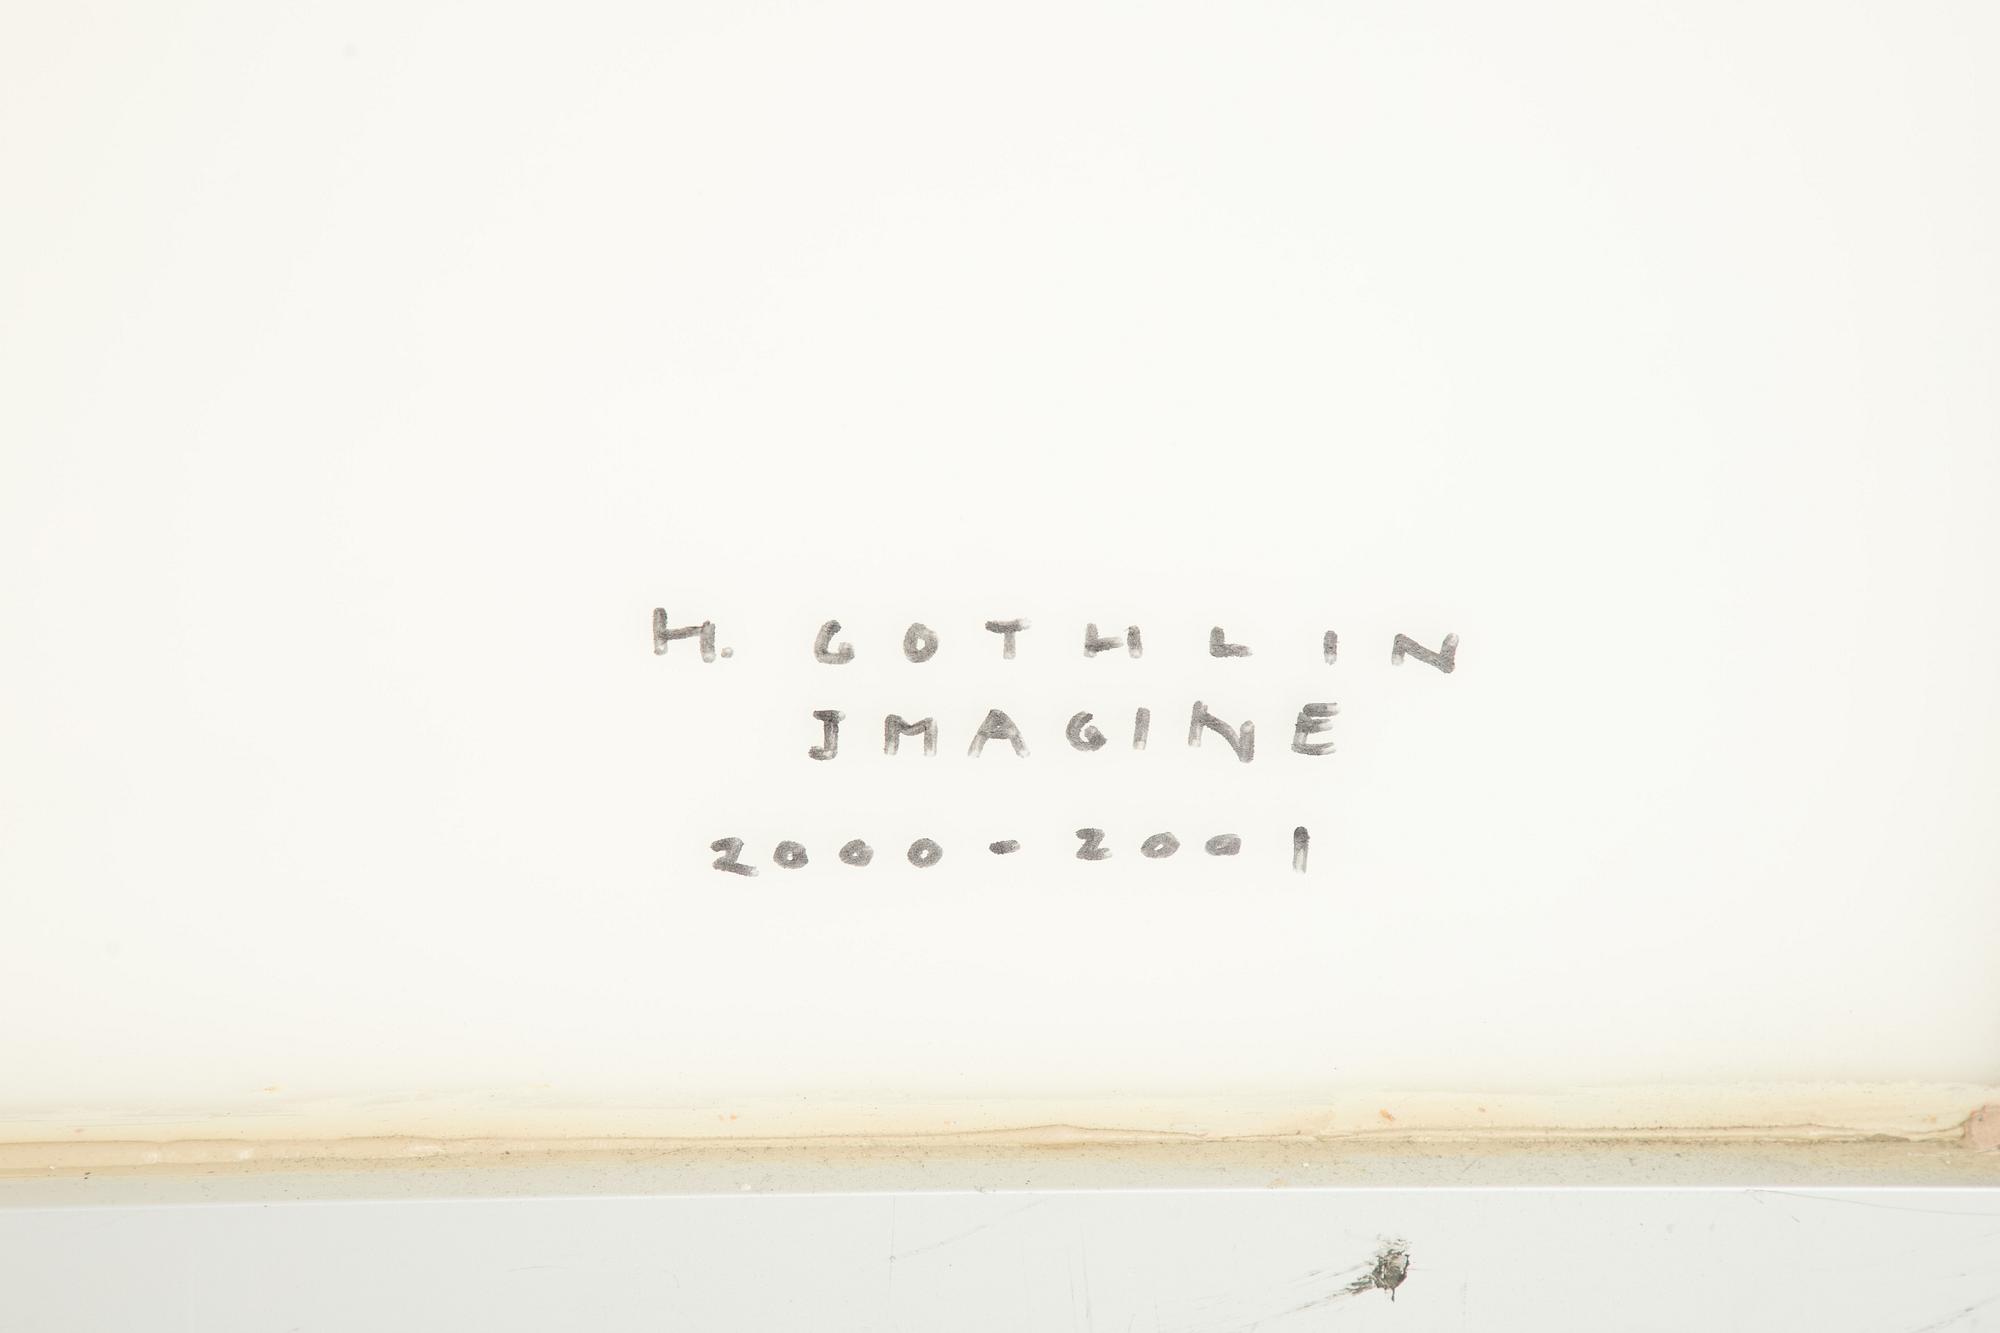 H. GOTHLIN
IMAGINE
2000-2001